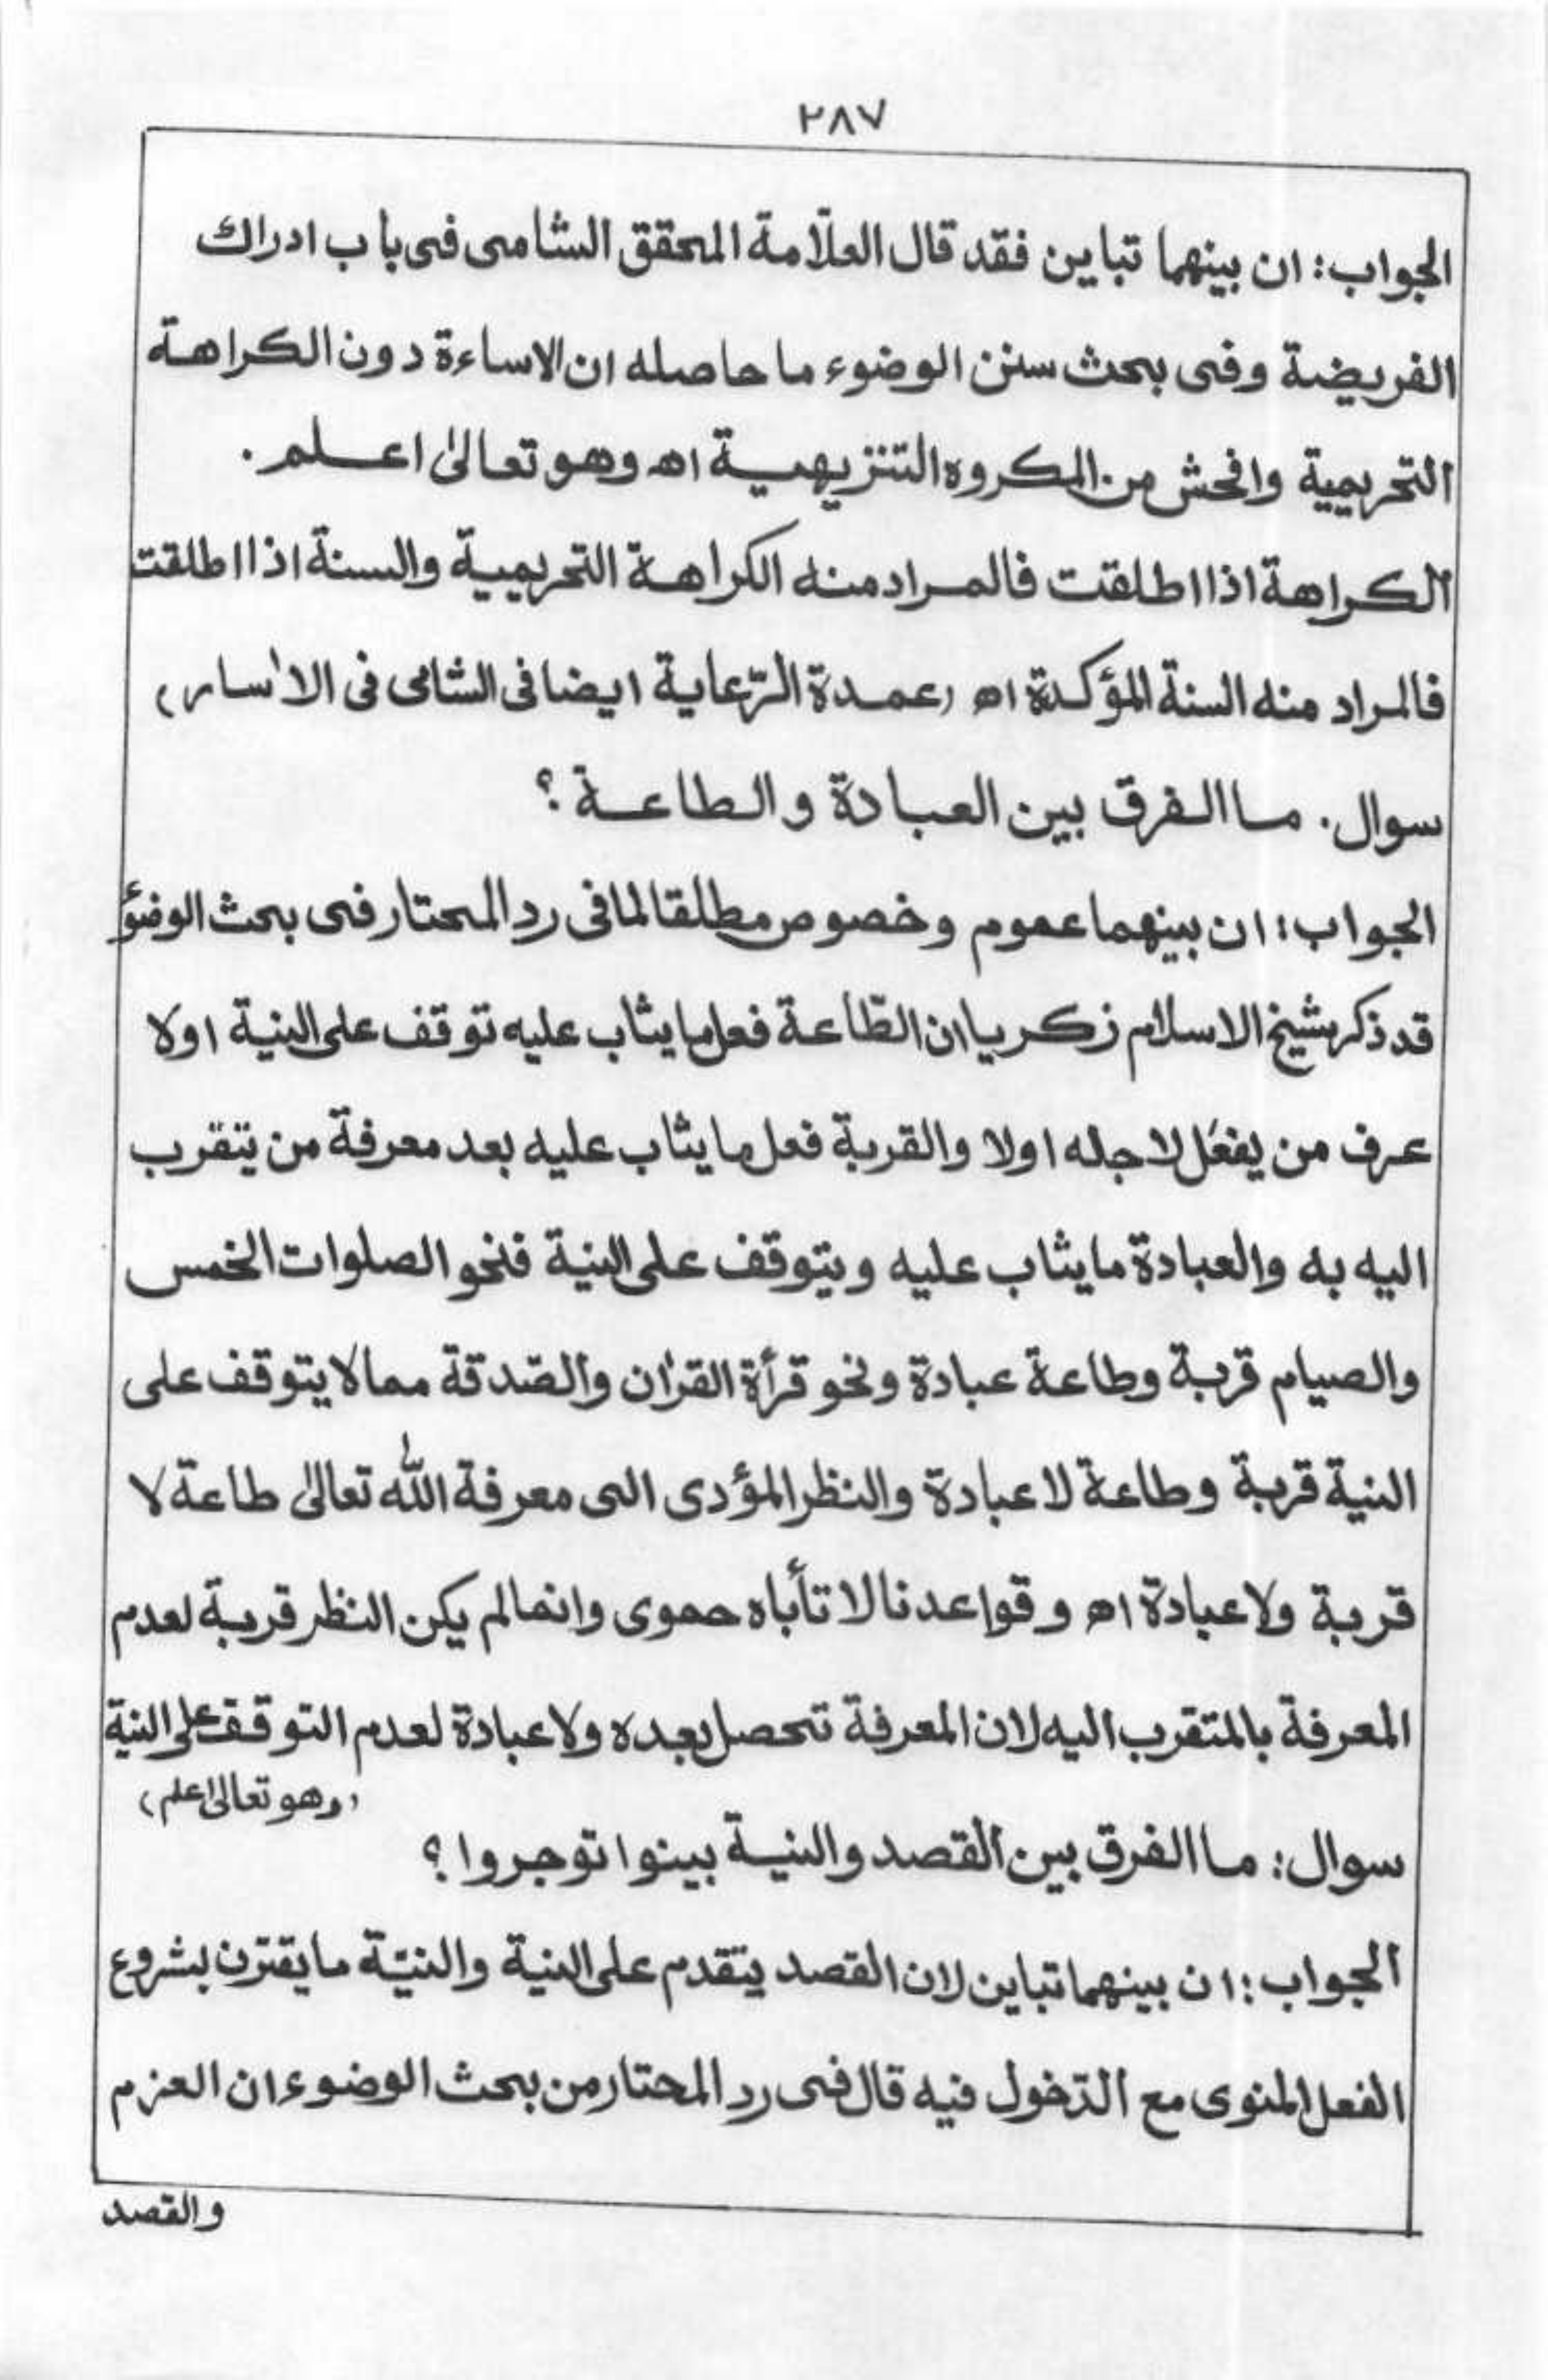 ٢٨٧
الجواب: ان بينهما تباين فقد قال العلّامة المحقق الشامى فى باب ادراك
الفريضة وفى بحث سنن الوضوء ما حاصله ان الاساءة دون الكراهة
التحريمية وافحش من المكروه التنزيهية اھ وهو تعالىٰ اعلم .
الكراهة اذا اطلقت فالمراد منه الكراهة التحريمية والسنة اذا اطلقت
فالمراد منه السنة المؤكدة اھ (عمدة الرّعاية ايضا فى الشامى فى الاٰسار)
سوال . ما الفرق بين العبادة والطاعة ؟
الجواب : ان بينهما عموم وخصوص مطلقا لما فى رد المحتار فى بحث الوضؤ
قد ذكر شيخ الاسلام زكريا ان الطّاعة فعل ما يثاب عليه توقف على النية اولا
عرف من يفعل لاجله اولا والقربة فعل ما يثاب عليه بعد معرفة من يتقرب
اليه به والعبادة ما يثاب عليه ويتوقف على النية فنحو الصلوات الخمس
والصيام قربة وطاعة عبادة ونحو قرأة القرٰان والصّدقة مما لا يتوقف على
النية قربة وطاعة لا عبادة والنظر المؤدى الى معرفة الله تعالىٰ طاعة لا
قربة ولا عبادة اھ وقواعدنا لا تأباه حموى وانما لم يكن النظر قربة لعدم
المعرفة بالمتقرب اليه لان المعرفة تحصل بعده ولا عبادة لعدم التوقف على النية
(وهو تعالىٰ اعلم)
سوال: ما الفرق بين القصد والنية بينوا توجروا ؟
الجواب: ان بينهما تباين لان القصد يتقدم على النية والنيّة ما يقترن بشروع
الفعل المنوى مع الدّخول فيه قال فى رد المحتار من بحث الوضوء ان العزم
والقصد